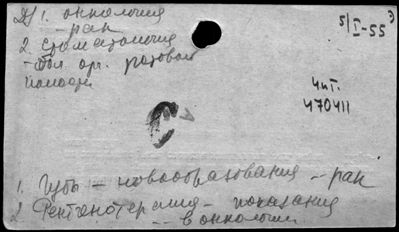 1. онкология
- рак
2. Стоматология
- бол. орг. ротовой
полости
5/I-55
Чит.
470411
1. Губы - новообразования - рак
2. Рентгенотерапия - показания
- в онкологии